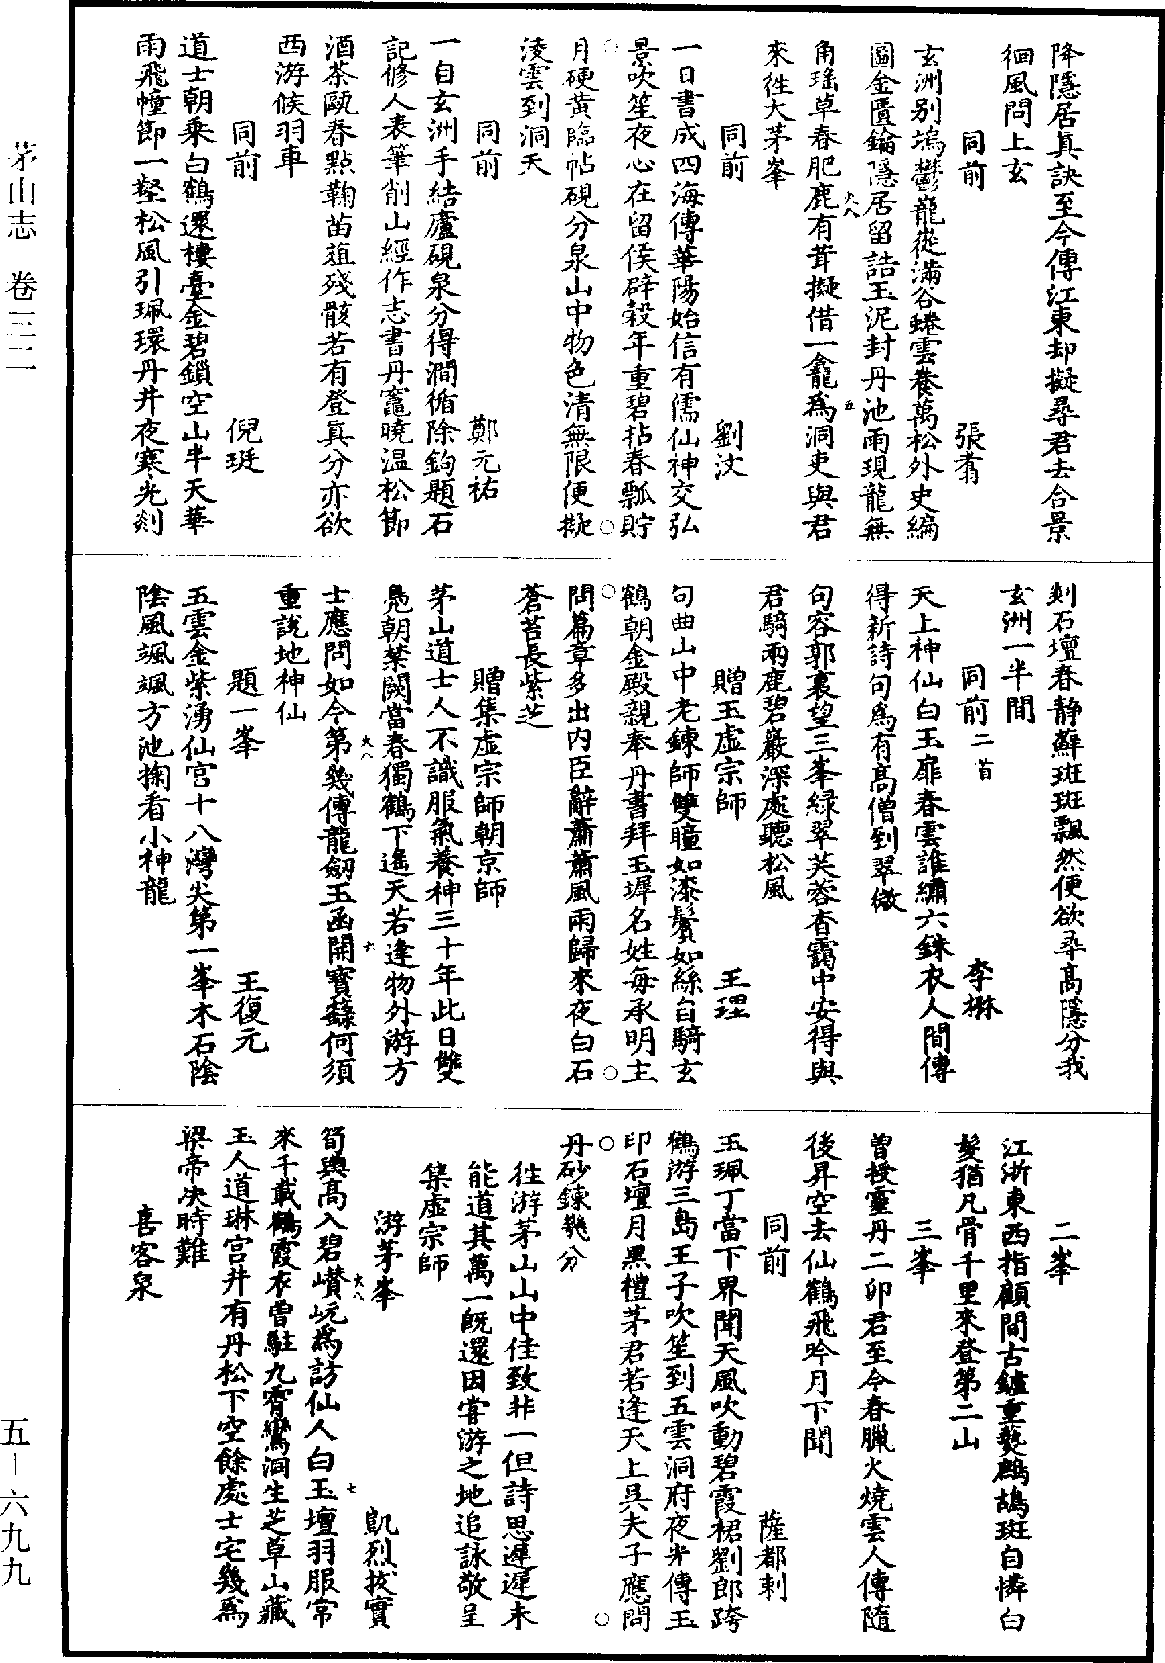 茅山志　卷三二
降隱居真訣至今傳江東却擬尋君去合景
徊風問上玄
同前　張翥
玄洲別塢鬱巃嵸滿谷蜷雲養萬松外史編
圖金匱鑰隱居留誥玉泥封丹池雨現龍無
角瑤草春肥鹿有茸擬借一龕為洞吏與君
來往大茅峯
同前　劉汶
一日書成四海傳華陽始信有儒仙神交弘
景吹笙夜心在留侯辟穀年重碧拈春瓢貯
月硬黃臨帖硯分泉山中物色清無限便擬
淩雲到洞天
同前　鄭元祐
一自玄洲手結廬硯泉分得澗循除鉤題石
記修人表筆削山經作志書丹竈曉温松節
酒茶甌春點鞠苗葅殘骸若有登真分亦欲
西游候羽車
同前　倪珽
道士朝乘白鶴還樓臺金碧鎖空山半天華
雨飛幢節一壑松風引珮環丹井夜寒光剡
剡石壇春静蘚斑斑飄然便欲尋高隱分我
玄洲一半間
同前二首　李
天上神仙白玉扉春雲誰繡六銖衣人間傳
得新詩句為有高僧到翠微
句容郭裏望三峯緑翠芙蓉杳靄中安得與
君騎兩鹿碧巖深處聽松風
贈玉虛宗師　王理
句曲山中老鍊師雙瞳如漆鬢如絲自騎玄
鶴朝金殿親奉丹書拜玉墀名姓每承明主
問篇章多出內臣辭蕭蕭風雨歸來夜白石
蒼苔長紫芝
贈集虛宗師朝京師
茅山道士人不識服氣養神三十年此日雙
鳧朝禁闕當春獨鶴下遙天若逢物外游方
士應問如今第幾傳龍劒玉函開寶籙何須
重說地神仙
題一峯　王復元
五雲金紫湧仙宮十八灣尖第一峯木石陰
陰風颯颯方池掬看小神龍
二峯
江浙東西指顧間古鑪重爇鷓鴣斑自憐白
髮猶凡骨千里來登第二山
三峯
曽授靈丹二卯君至今春臘火燒雲人傳隨
後昇空去仙鶴飛吟月下聞
同前　薩都剌
玉珮丁當下界聞天風吹動碧霞裙劉郎跨
鶴游三島王子吹笙到五雲洞府夜光傳玉
印石壇月黑禮茅君若逢天上吳夫子應問
丹砂鍊幾分
往游茅山山中佳致非一但詩思遲遲未
能道其萬一旣還因嘗游之地追詠敬呈
集虛宗師
游茅峯　凱烈拔實
筍輿高入碧巑岏為訪仙人白玉壇羽服常
來千載鶴霞衣曽駐九霄鸞洞生芝草山藏
玉人道琳宮井有丹松下空餘處士宅幾為
梁帝决時難
喜客泉
大八
五
大八
六
大八
七
五—六九九